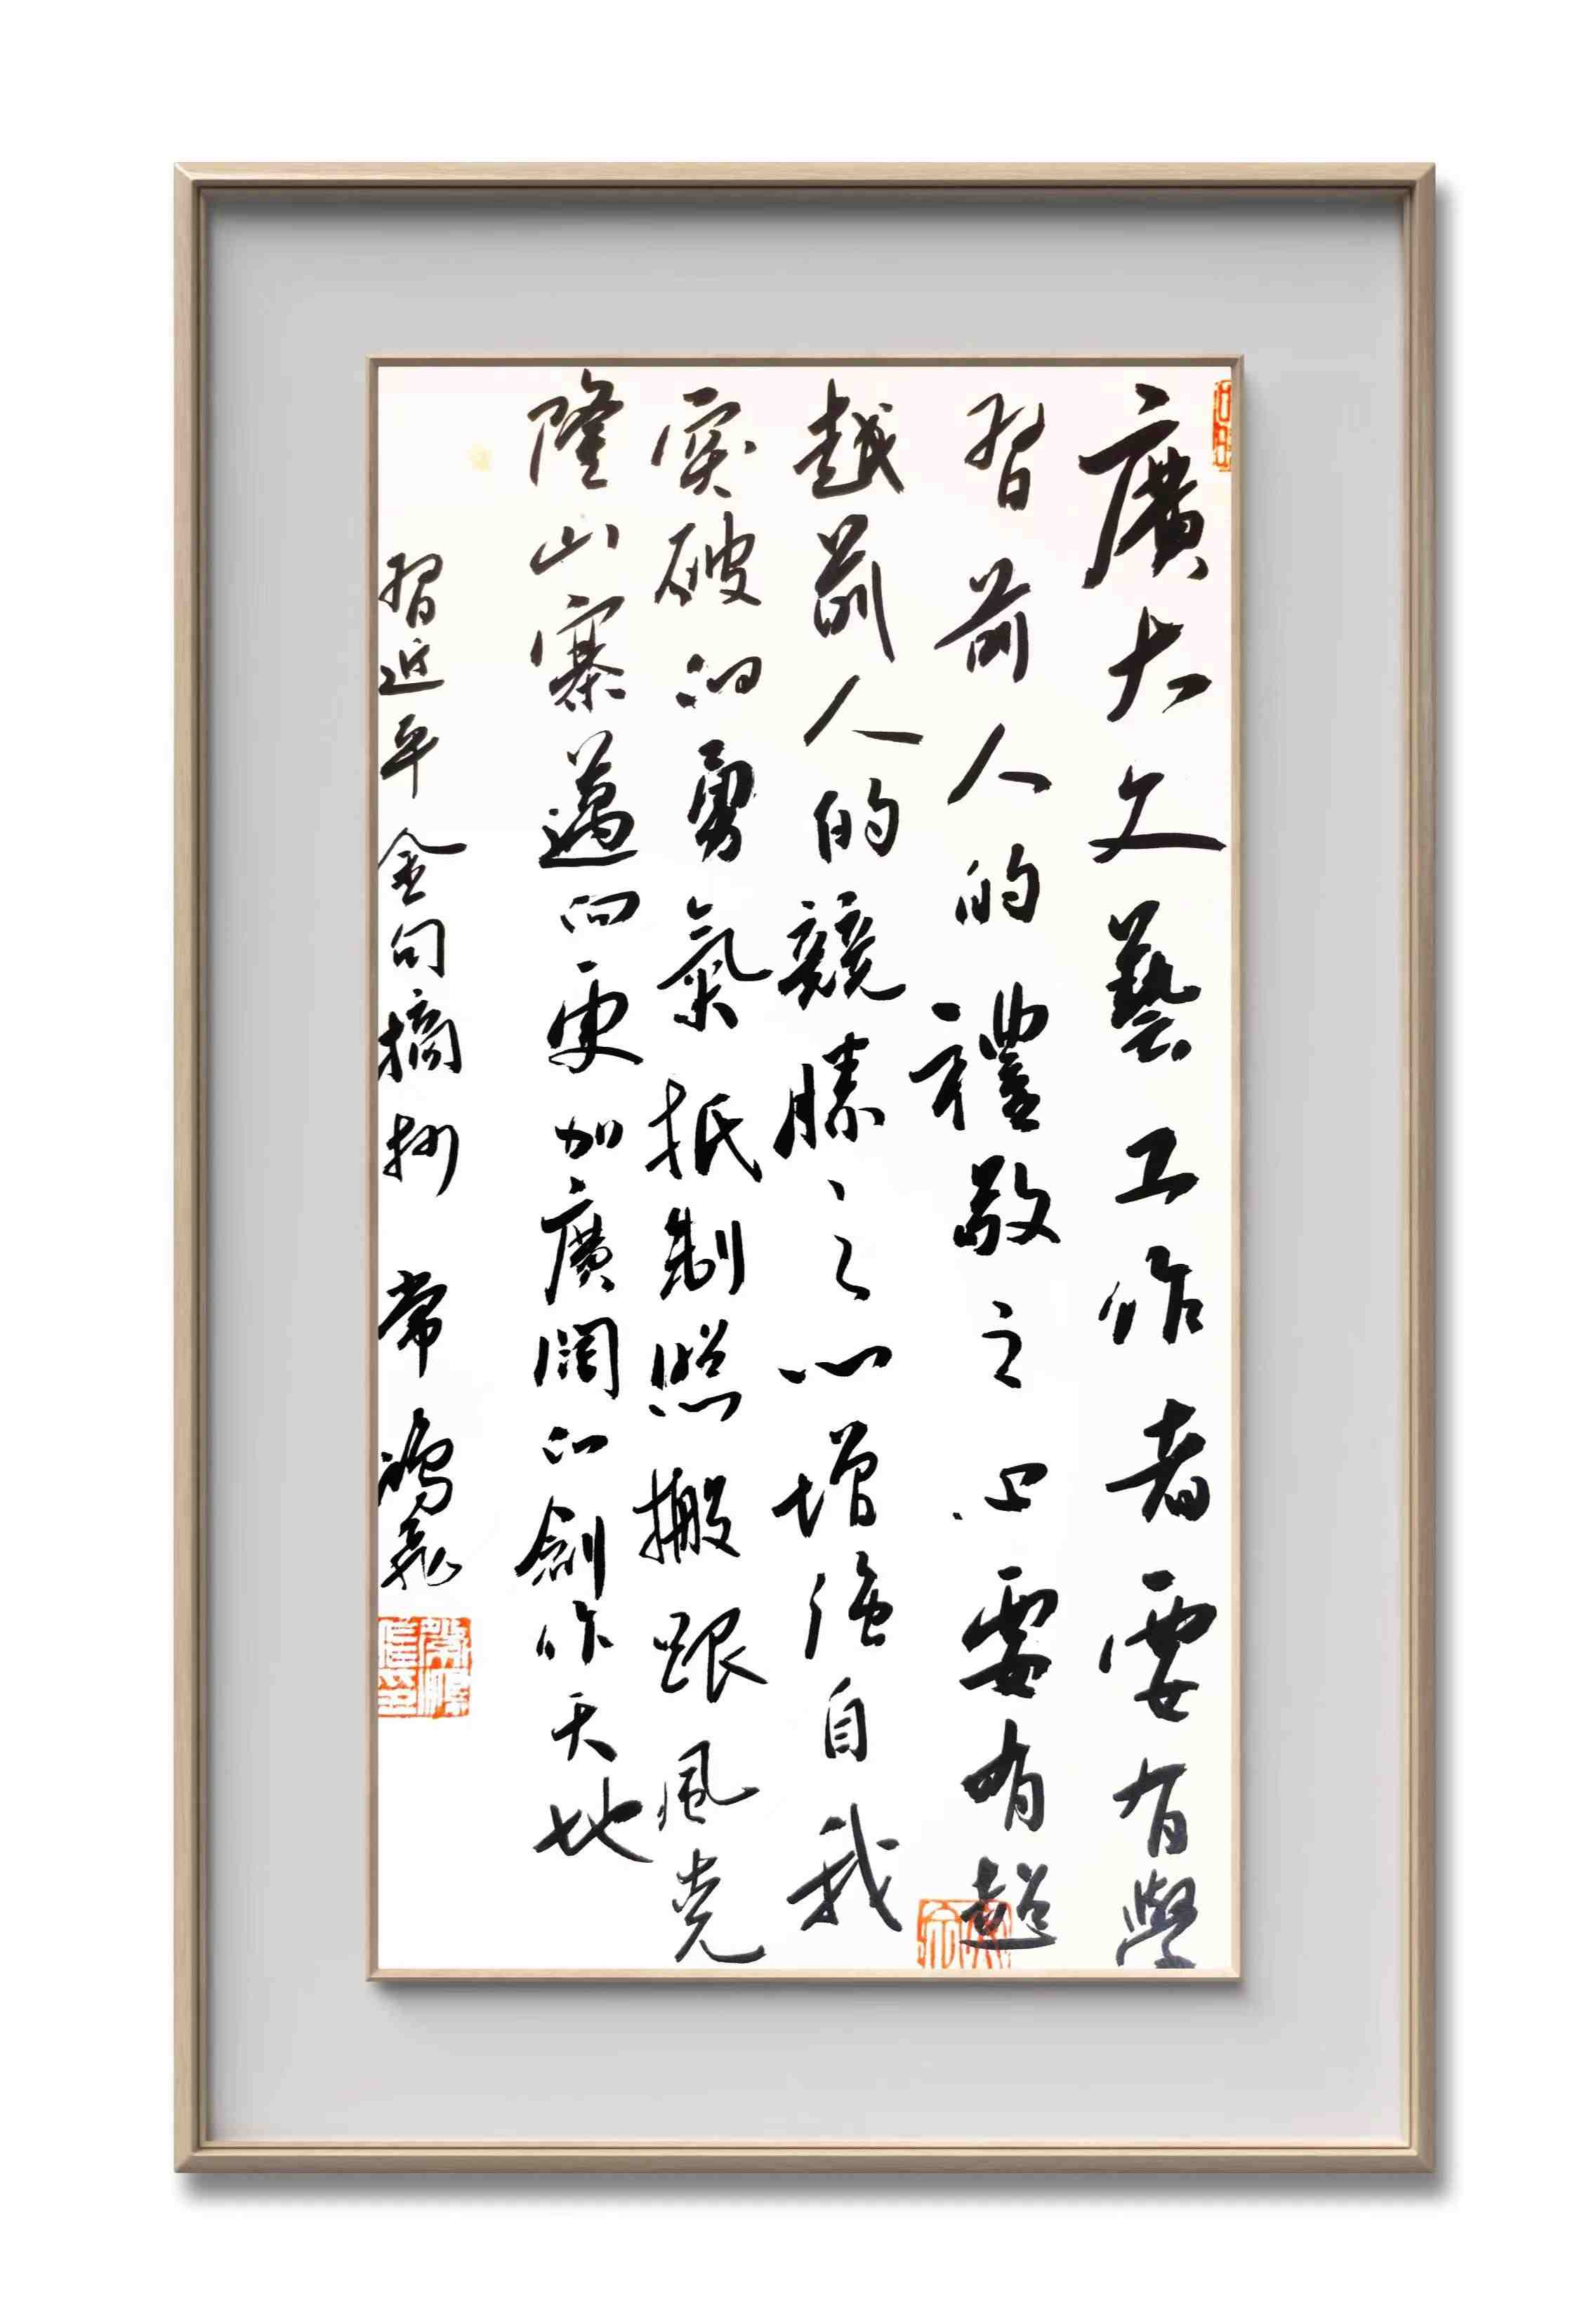 廣大文藝工作者要有學
習前人的禮敬之心要有超
越前人的競勝之心增強自我
突破的勇氣抵制照搬跟風克
隆山寨邁向更加廣闊的創作天地
習近平金句摘抄 常鴻飛